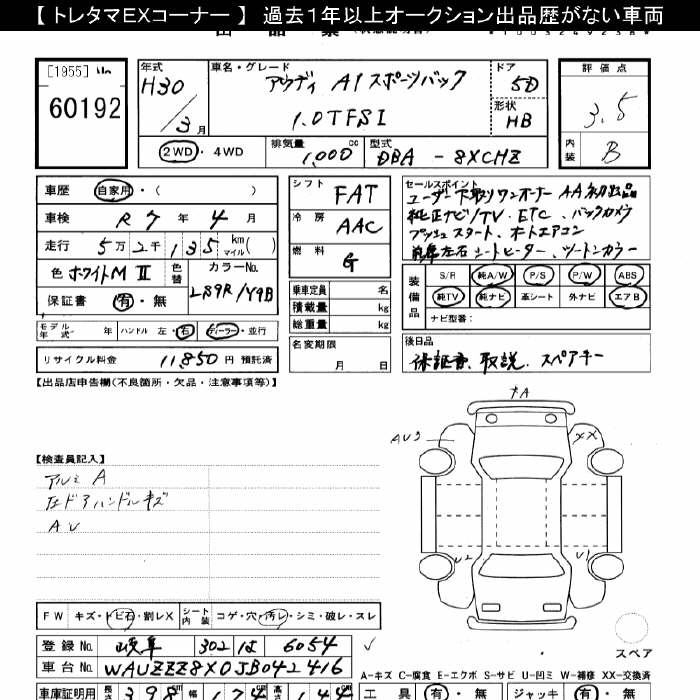 【 トレタマEXコーナー 】 過去1年以上オークション出品歴がない車両
[1955]
60192
年式
H30
/3月
車名・グレード
アウディ A1 スポーツバック
1.0TFSI
ドア
5D
形状
HB
評価点
3.5
内装
B
2WD・4WD
排気量
1,000 cc
型式
DBA - 8XCHZ
車歴 自家用・( )
車検 R 7 年 4 月
走行 5万2千135 km マイル( )
色 ホワイトM II
色替
カラーNo.
LS9R/Y9B
保証書 有・無
モデル年式 年 ハンドル 左・右 ディーラー・並行
リサイクル料金 11,850 円 預託済
シフト
FAT
冷房
AAC
燃料
G
乗車定員 名
積載量 kg
総重量 kg
名変期限
月 日
セールスポイント
ユーザー下取りワンオーナー AA初出品
純正ナビ/TV . ETC 、バックカメラ
プッシュスタート、オートエアコン
前席左右シートヒーター、ツートンカラー
装備品
S/R 純A/W P/S P/W ABS
純TV 純ナビ 革シート 外ナビ エアB
ナビ型番:
後日品
保証書、取説、スペアキー
【出品店申告欄(不良箇所・欠品・注意事項等)】
【検査員記入】
アルミ A
左ドアハンドルキズ
AU
キA
AU3
XX
U2
U1
スペア
FW キズ・トビ石・割レX
シート内装 コゲ・穴・汚レ・シミ・破レ・スレ
登録No. 岐阜 302 は 6054
車台No. WAUZZZ8X0JB042416
A-キズ C-腐食 E-エクボ S-サビ U-凹ミ W-補修 XX-交換済
車庫証明用 長さ 398 幅 174
工具 有・無 ジャッキ 有・無